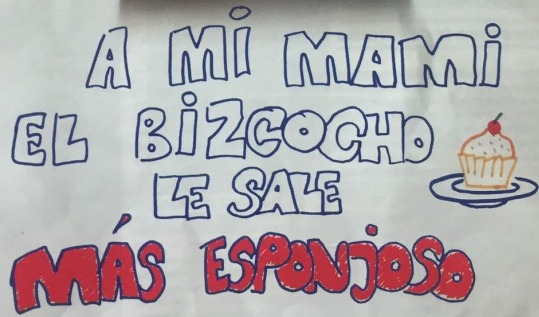 A Mi MAMi
EL BiZCOCHO
LE SALE
MÁS ESPONjOSO